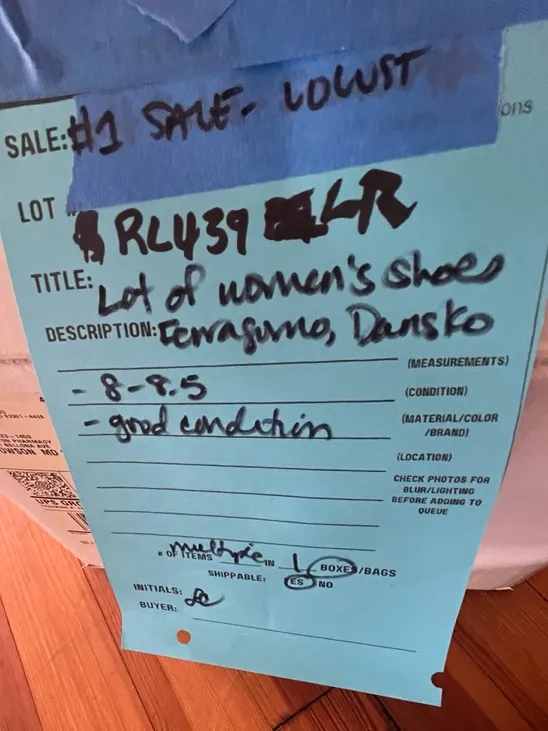 SALE: #1 SALE - LOCUST
ons
LOT # RL439 LR
TITLE: Lot of women's shoes
DESCRIPTION: Ferragumo, Dansko
(MEASUREMENTS)
- 8-8.5 (CONDITION)
- good condition (MATERIAL/COLOR
/BRAND)
(LOCATION)
CHECK PHOTOS FOR
BLUR/LIGHTING
BEFORE ADDING TO
QUEUE
# OF ITEMS multiple IN 1 BOXES/BAGS
SHIPPABLE: ES NO
INITIALS:
BUYER:
PHARMACY
BELLONA AVE
OWSON MD
UPS GRO